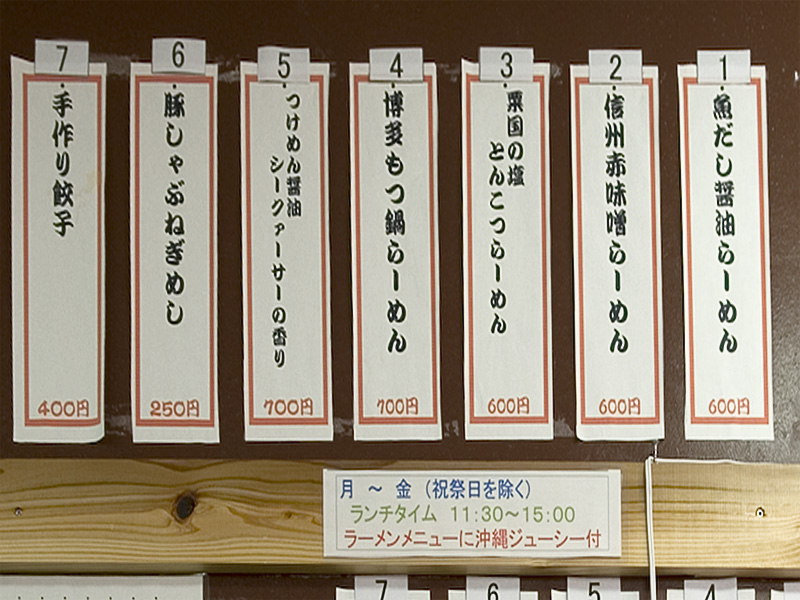 1
魚だし醤油らーめん
600円
2
信州赤味噌らーめん
600円
3
粟国の塩
とんこつらーめん
600円
4
博多もつ鍋らーめん
700円
5
つけめん醤油
シークァーサーの香り
700円
6
豚しゃぶねぎめし
250円
7
手作り餃子
400円
月 ～ 金 （祝祭日を除く）
ランチタイム 11:30～15:00
ラーメンメニューに沖縄ジューシー付
7
6
5
4